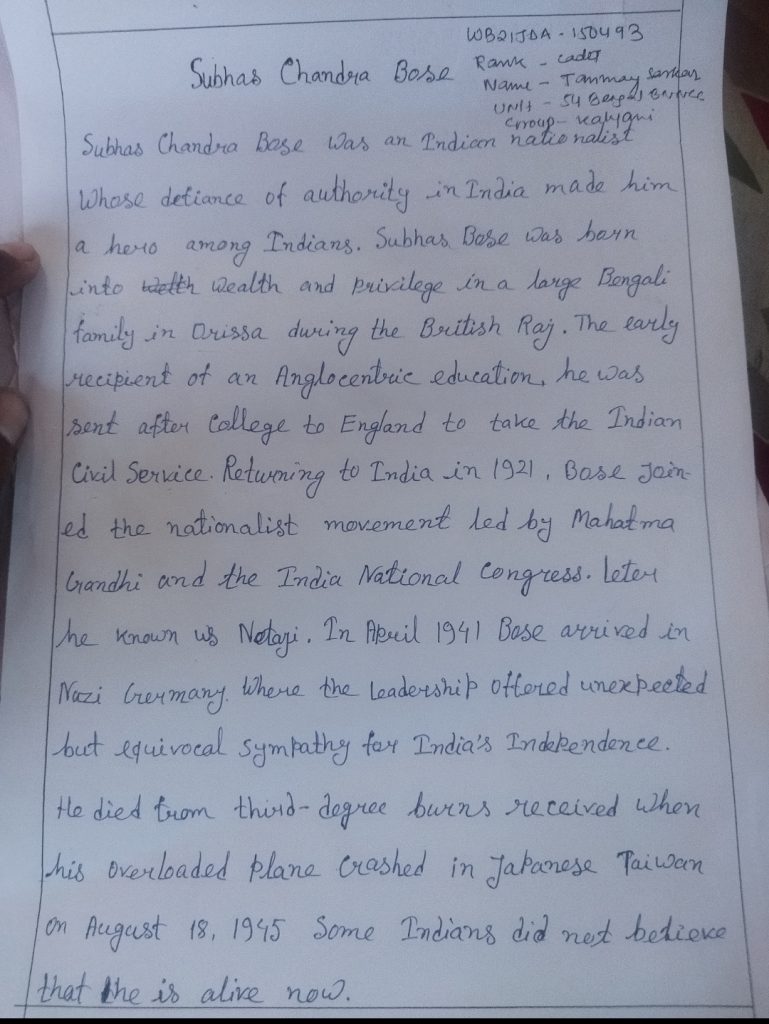 WB21JDA - 150493
Subhas Chandra Bose
Rank - cadet
Name - Tanmay Sarkar
Unit - 54 Bengal
Group - Kalyani
Subhas Chandra Bose was an Indian nationalist
Whose defiance of authority in India made him
a hero among Indians. Subhas Bose was born
into wealth and privilege in a large Bengali
family in Orissa during the British Raj. The early
recipient of an Anglocentric education, he was
sent after College to England to take the Indian
Civil Service. Returning to India in 1921, Bose Join-
ed the nationalist movement led by Mahatma
Gandhi and the India National Congress. Leter
he known us Netagi. In April 1941 Bose arrived in
Nazi Germany. Where the Leadership offered unexpected
but equivocal sympathy for India's Independence.
He died from third-degree burns received when
his overloaded plane Crashed in Japanese Taiwan
on August 18, 1945 Some Indians did not believe
that he is alive now.